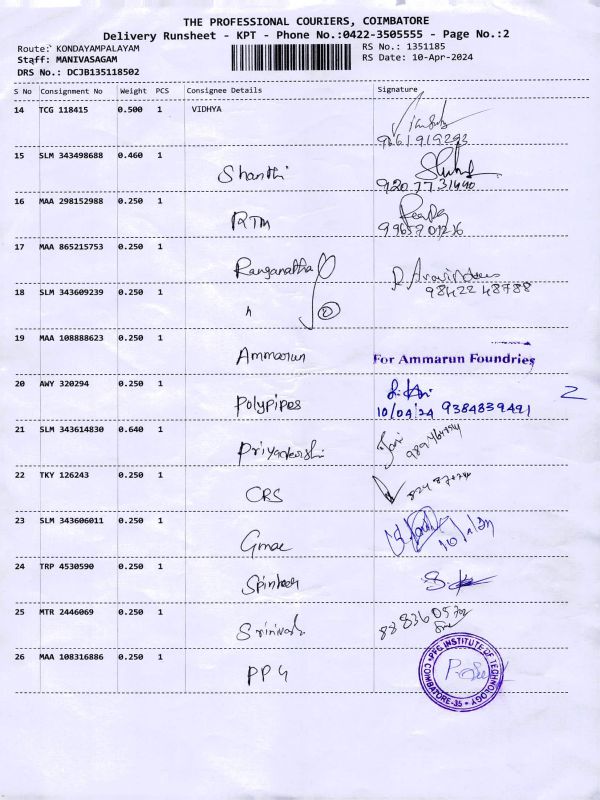 THE PROFESSIONAL COURIERS, COIMBATORE
Delivery Runsheet - KPT - Phone No.:0422-3505555 - Page No.:2
Route: KONDAYAMPALAYAM
RS No.: 1351185
Staff: MANIVASAGAM
RS Date: 10-Apr-2024
DRS No.: DCJB135118502
S No Consignment No Weight PCS Consignee Details Signature
14 TCG 118415 0.500 1 VIDHYA
15 SLM 343498688 0.460 1 Shanthi
16 MAA 298152988 0.250 1 RTM
17 MAA 865215753 0.250 1 Ranganatha
98422 48788
18 SLM 343609239 0.250 1
19 MAA 108888623 0.250 1 Ammarun For Ammarun Foundries
20 AWY 320294 0.250 1 Polypipes
10/04/24 9384839491
21 SLM 343614830 0.640 1 Priyadarshi
22 TKY 126243 0.250 1 CRS
23 SLM 343606011 0.250 1 Gmac
24 TRP 4530590 0.250 1
25 MTR 2446069 0.250 1
26 MAA 108316886 0.250 1 PPG
PPG INSTITUTE OF TECHNOLOGY
COIMBATORE-35